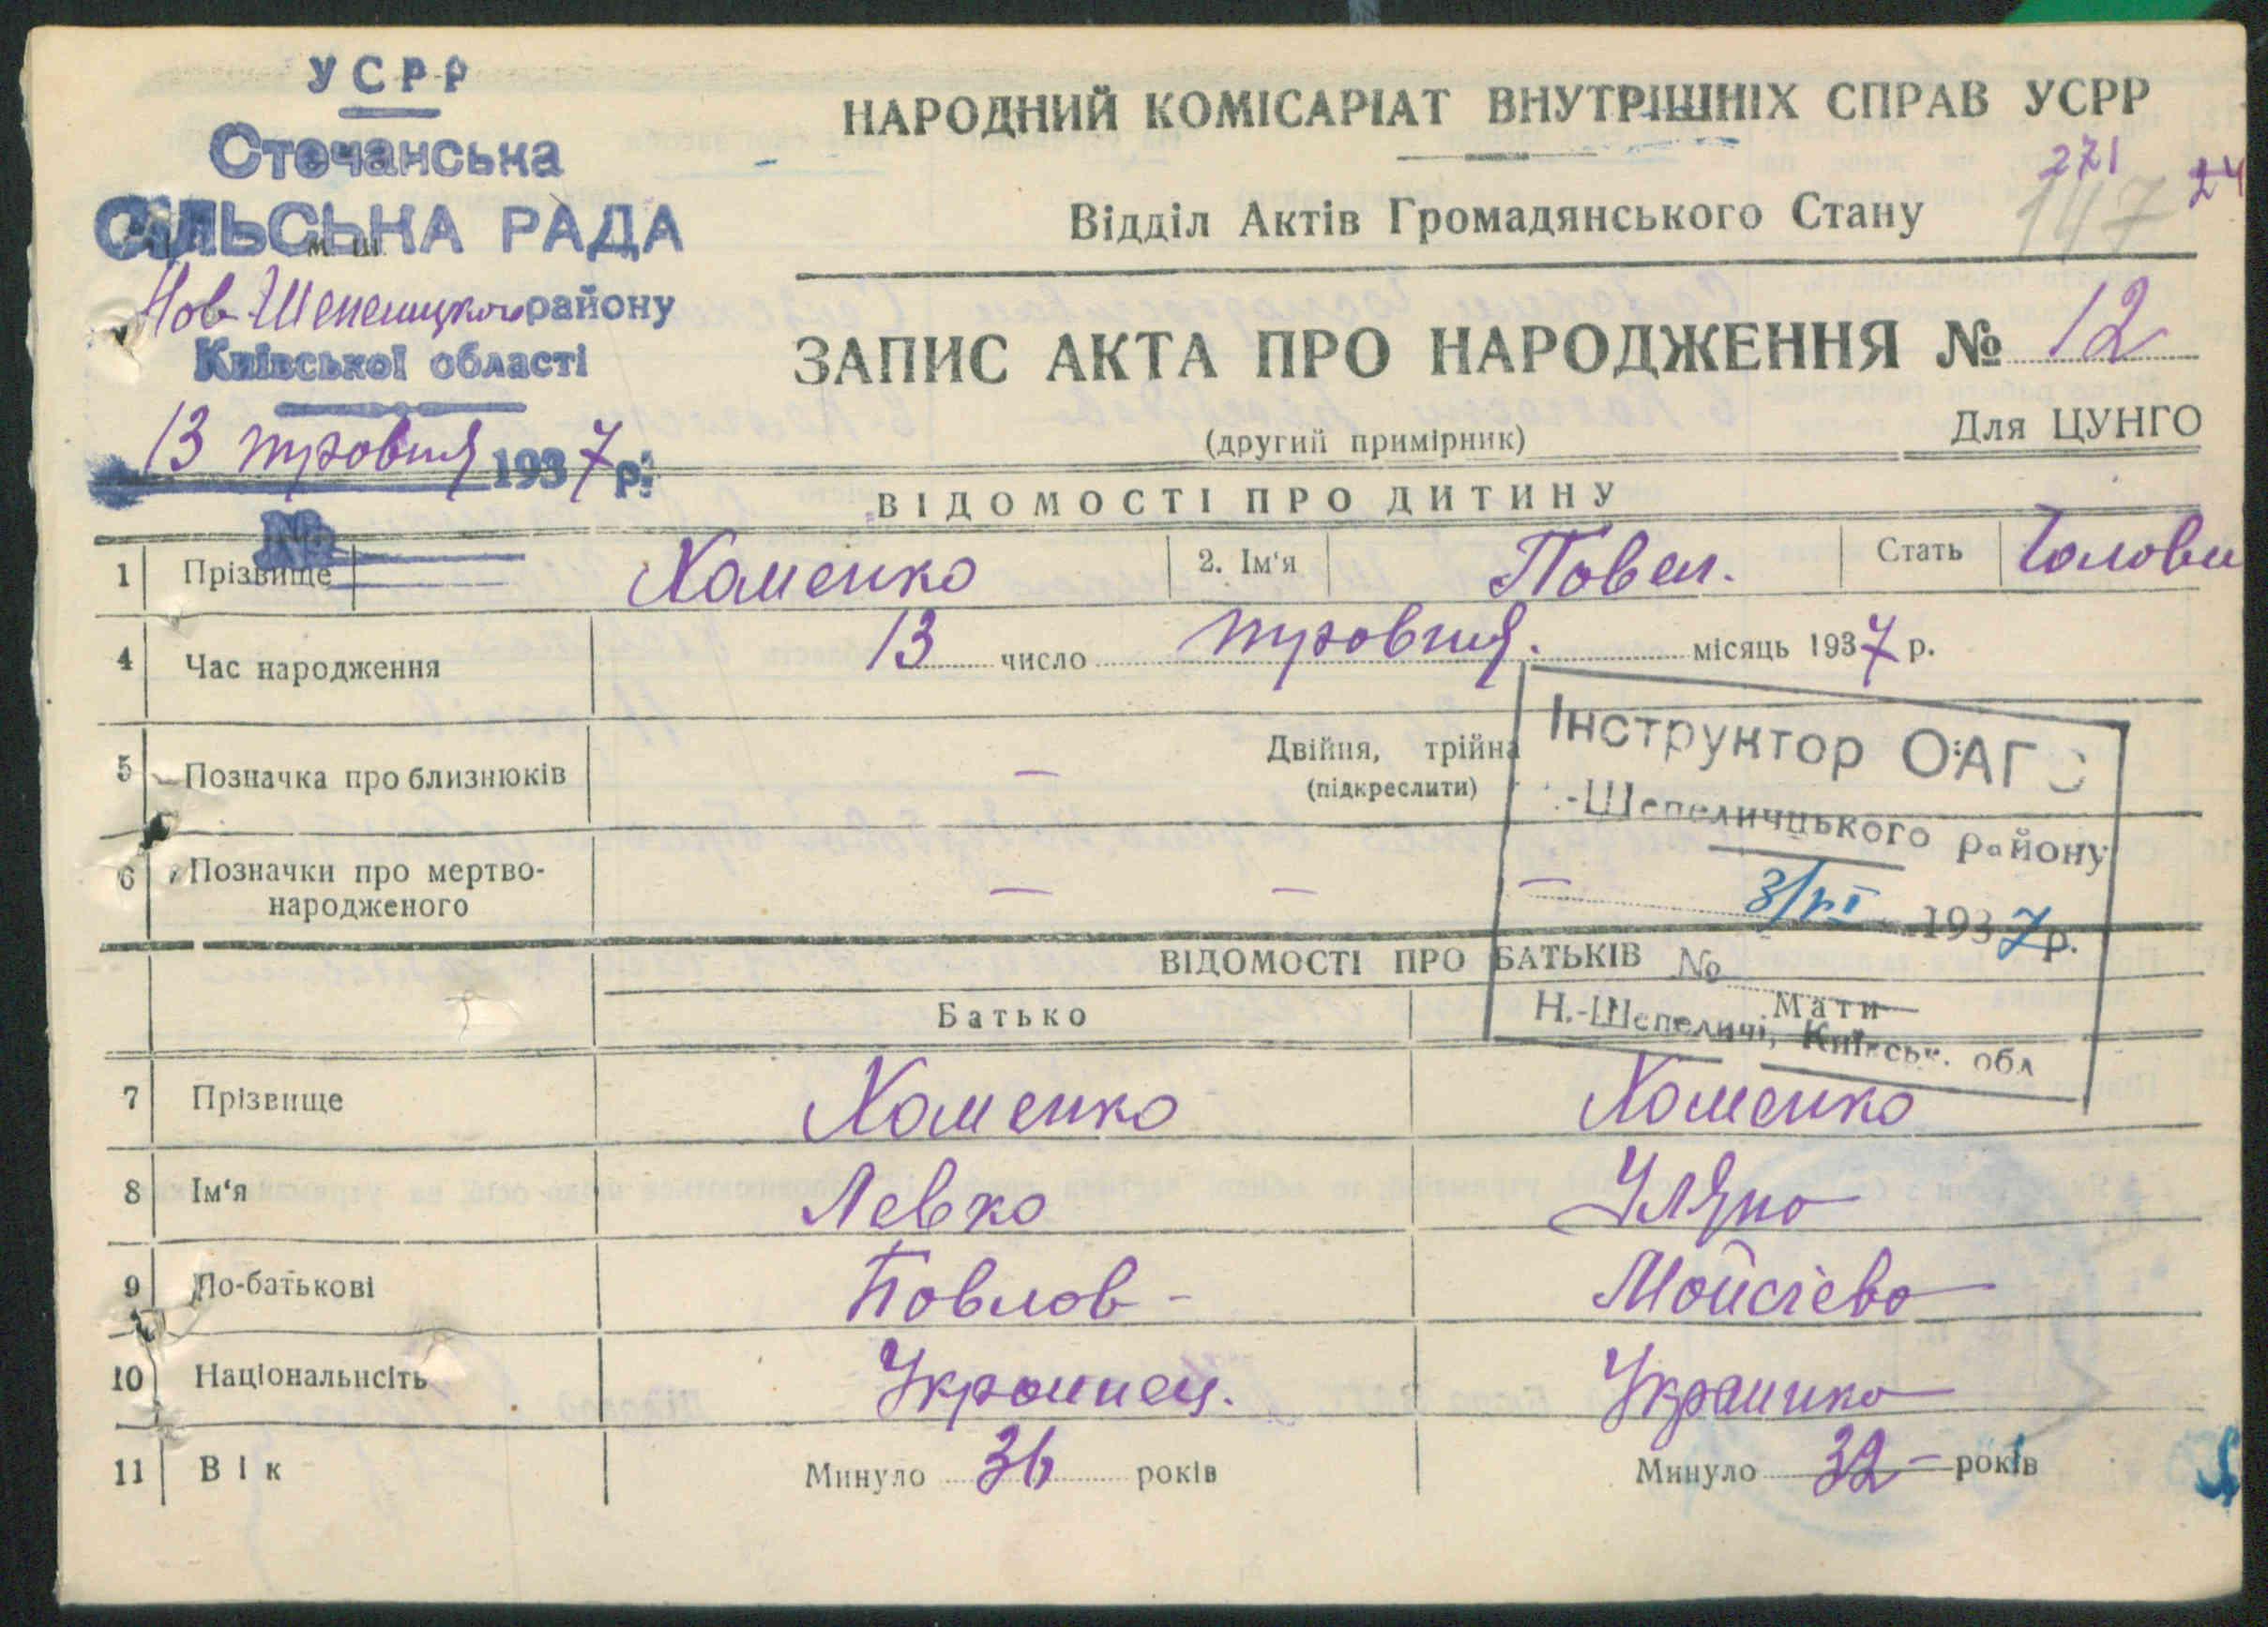 УСРР
Стечанська
СІЛЬСЬКА РАДА
Нов-Шепелицького району
Київської області
13 травня 1937 р.
№
НАРОДНИЙ КОМІСАРІАТ ВНУТРІШНІХ СПРАВ УСРР
271
24
147
Відділ Актів Громадянського Стану
ЗАПИС АКТА ПРО НАРОДЖЕННЯ № 12
(другий примірник)
Для ЦУНГО
ВІДОМОСТІ ПРО ДИТИНУ
1 Прізвище Хоменко 2. Ім'я Повел. Стать Чолови
4 Час народження 13 число травня. місяць 1937 р.
5 Позначка про близнюків — Двійня, трійна
(підкреслити)
6 Позначки про мертво-
народженого — — —
Інструктор ОАГС
-Шепеличцького району
3/VI 1937 р.
№
Н.-Шепеличі, Київськ. обл
ВІДОМОСТІ ПРО БАТЬКІВ
Батько Мати
7 Прізвище Хоменко Хоменко
8 Ім'я Левко Уляно
9 По-батькові Повлов- Мойсієво
10 Національнсіть Украинец. Украинко
11 Вік Минуло 36 років Минуло 32 - років